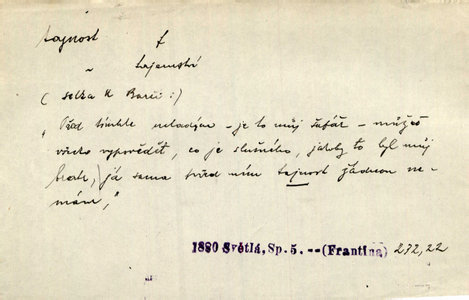 tajnost f
~ tajemství
(selka k Barči:)
„Před tímhle mladým – je to můj šafář – můžeš
všecko vypovědět, co je slušného, jakoby to byl můj
bratr, já sama před ním tajnost žádnou ne-
mám,"
1880 Světlá, Sp. 5. -- (Frantina) 272,22